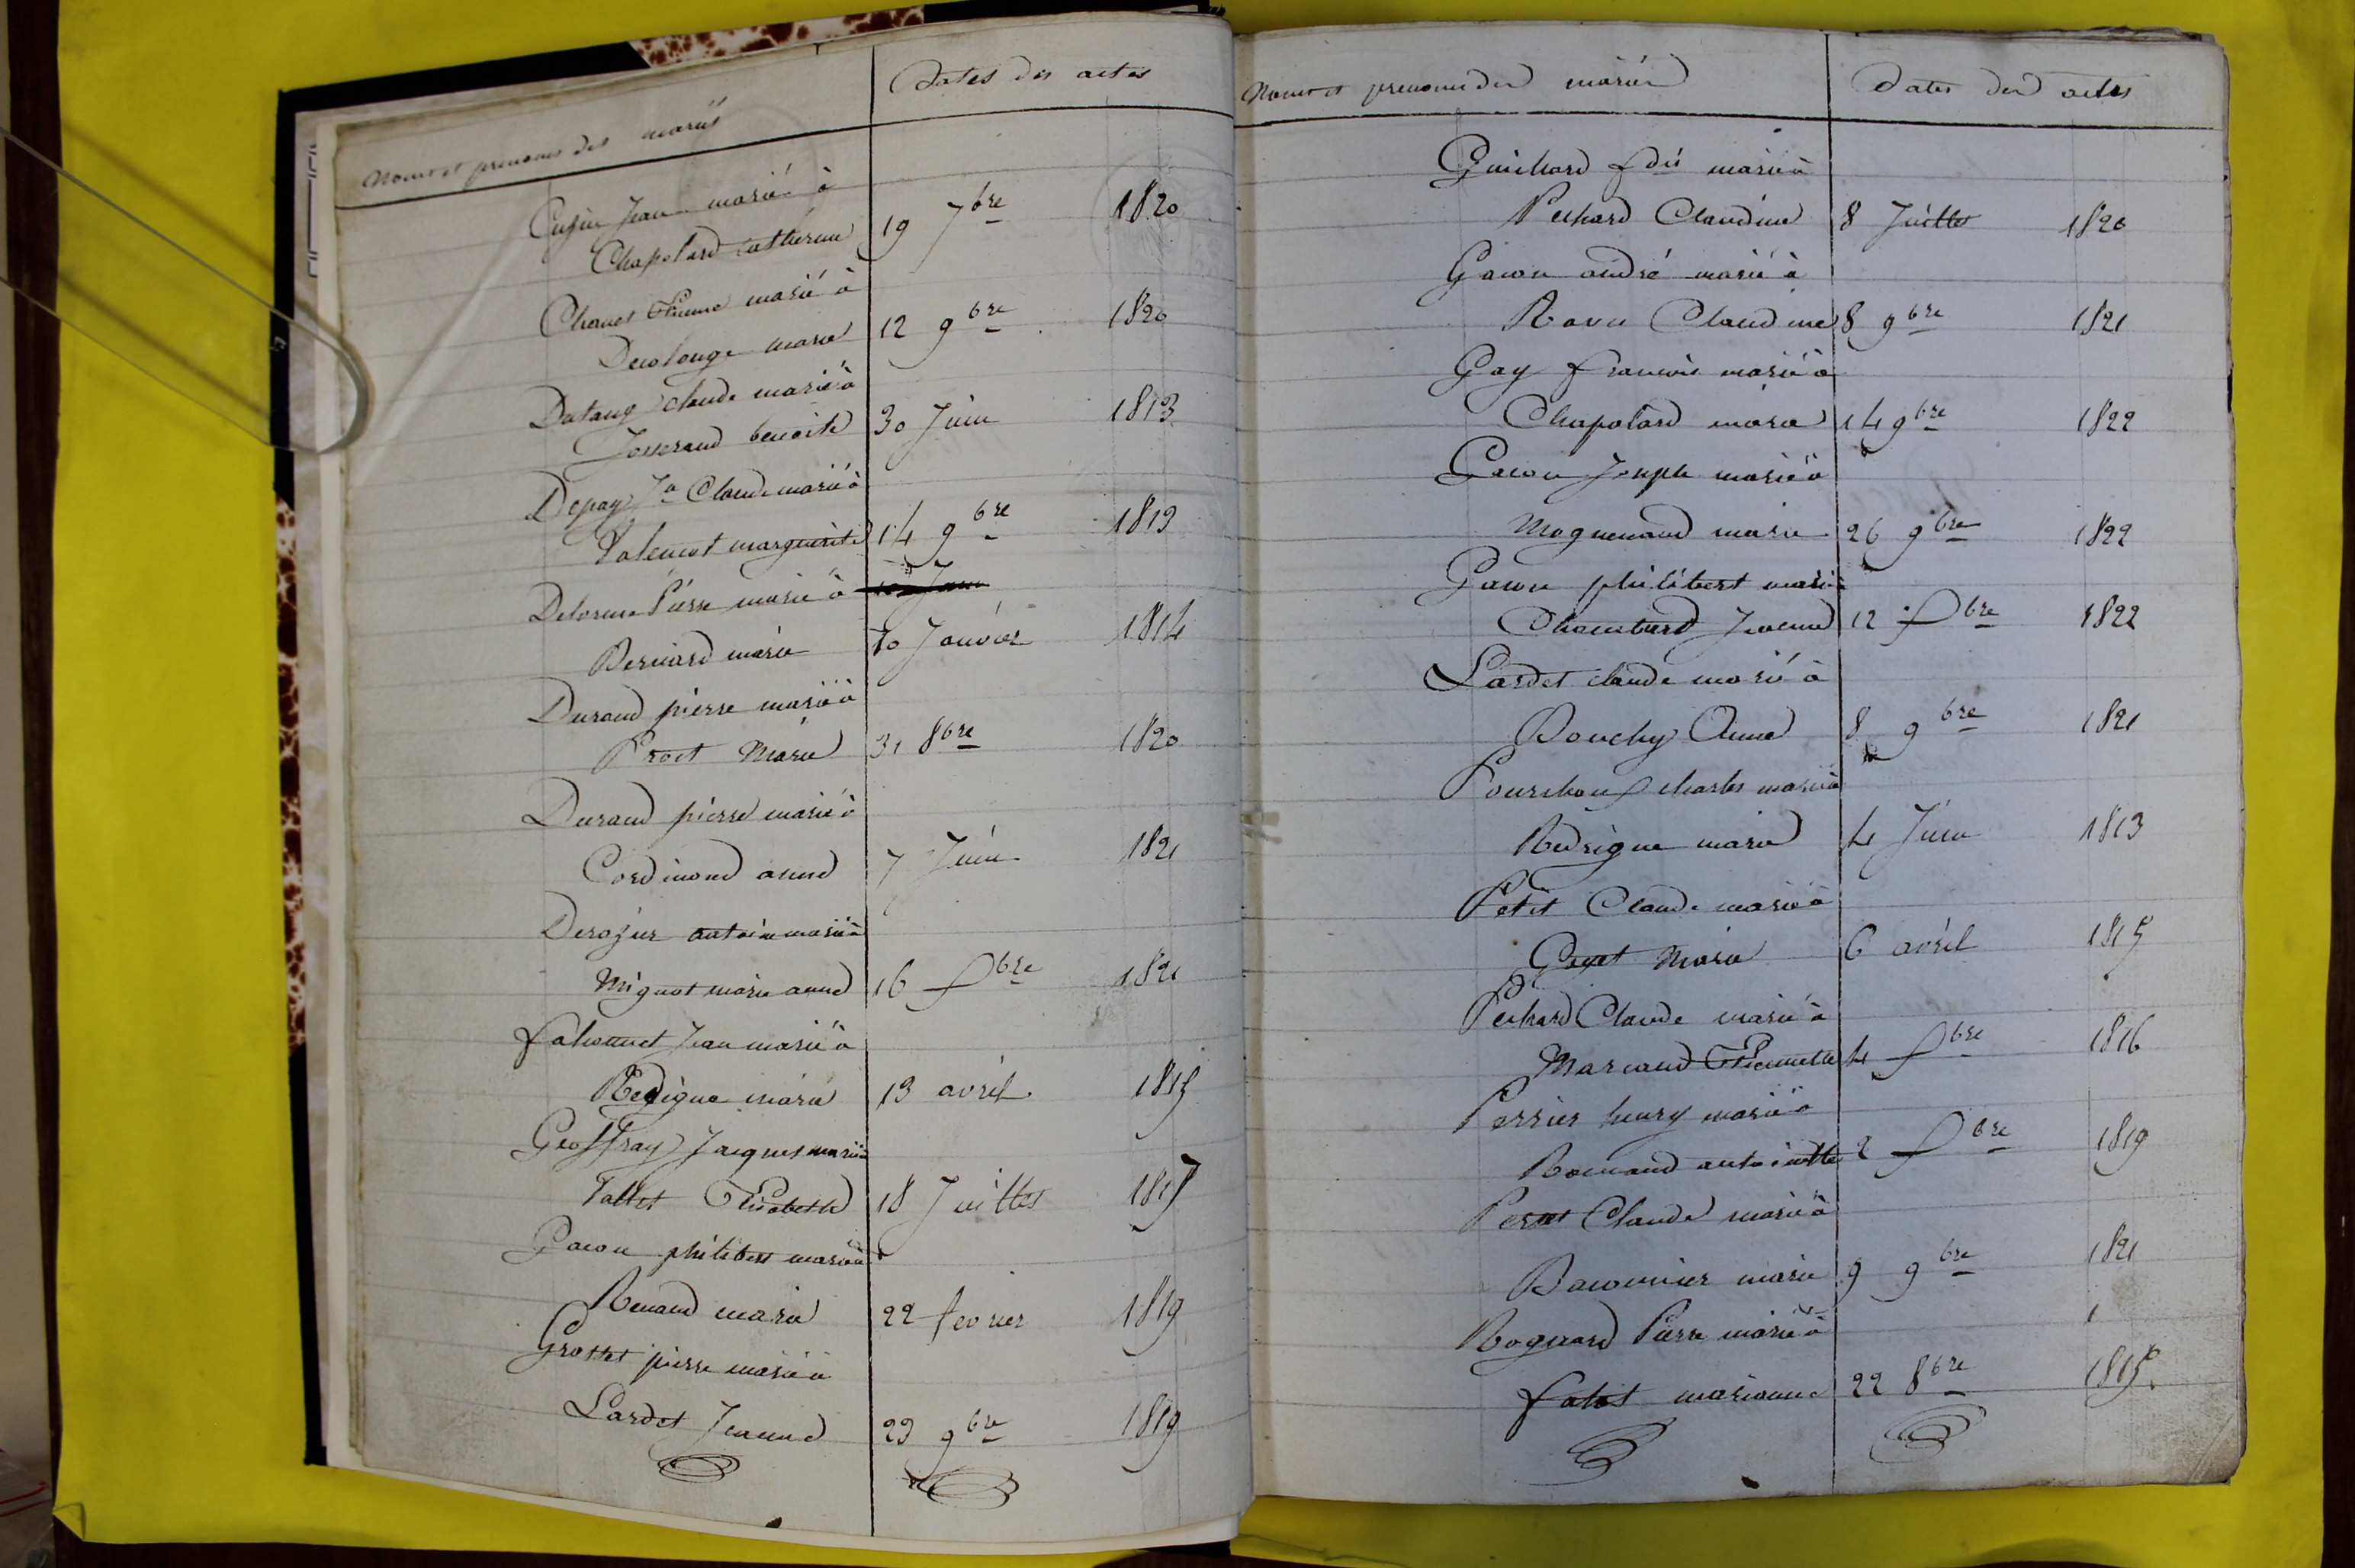 Noms et prenoms des mariés
Dates des actes
Jean marié à
Chapolard catherine 19 7bre 1820
Chanet Etienne marié à
Decolonge marie 12 9bre 1820
Dutang claude marié à
Josserand benoite 30 Juin 1813
Depay Jn Claude marié à
Valencot marguerite 14 9bre 1813
Delorme Pierre marié à
Bernard marie 10 Janvier 1814
Durand pierre marié à
Proit Marie 31 8bre 1820
Durand pierre marié à
Cordimond anne 7 Juin 1821
Derozier antoine marié à
Mignot marie anne 16 Xbre 1821
Jean marié à
marie 13 avril 1815
Geoffray Jacques marié à
Tallet Elisabeth 18 Juillet 1817
Gacon philibert marié à
Renaud marie 22 fevrier 1819
Grosset pierre marié à
Lardet Jeanne 23 9bre 1819
Noms et prenoms des mariés
Dates des actes
Guichard marié à
Pechard Claudine 8 Juillet 1820
Gacon andré marié à
Ravu Claudine 8 9bre 1821
Gay francois marié à
Chapolard marie 14 9bre 1822
Gacon Joseph marié à
Moguenand marie 26 9bre 1822
Gacon philibert marié à
Chambard Jeanne 12 Xbre 1822
Lardet claude marié à
Bouchy Anne 8 9bre 1821
Pourchoux charles marié à
Bedrigue marie 4 Juin 1813
Petit Claude marié à
Gayet Marie 6 avril 1815
Pechard Claude marié à
Marcaud Etiennette 4 Xbre 1816
Perrier henry marié à
Romand antoinette 2 Xbre 1819
Perret Claude marié à
marie 9 9bre 1821
Bognard Pierre marié à
marianne 22 8bre 1815